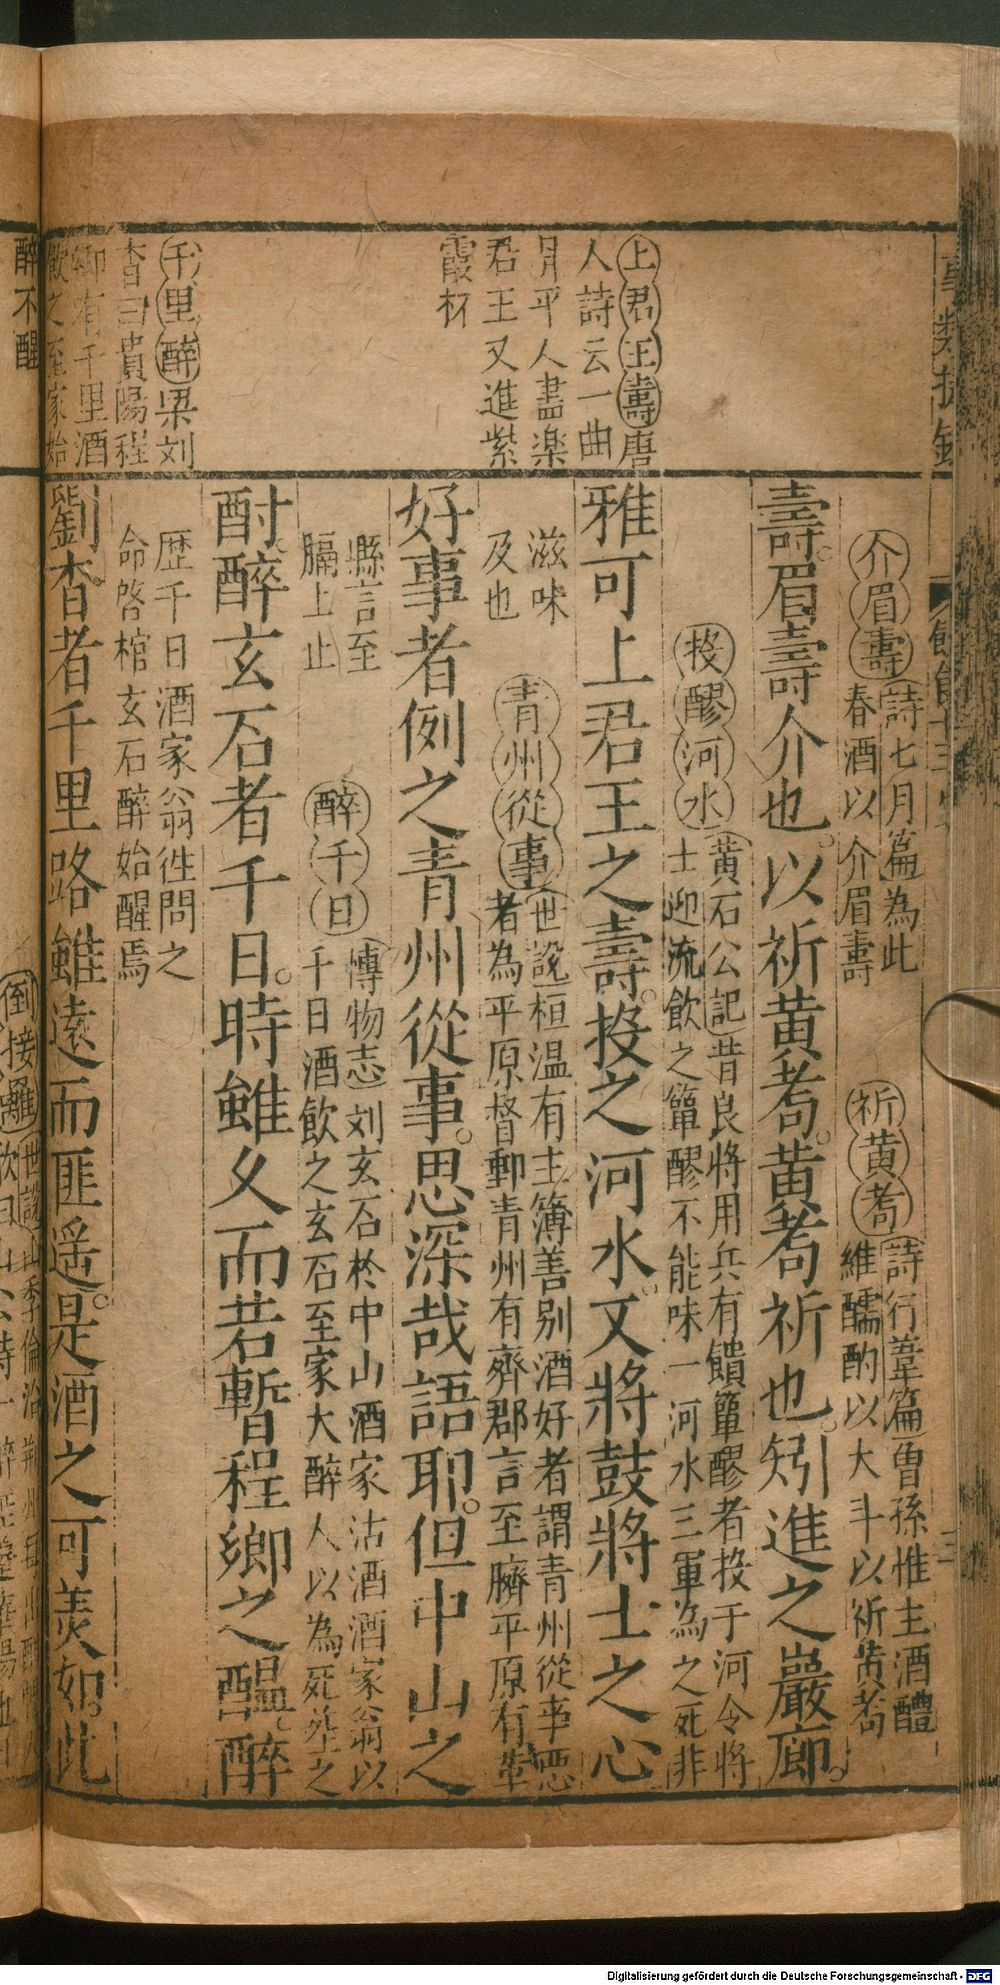 上君王壽唐
人詩云一曲
昇平人盡楽
君王又進紫
霞杯
千里醉梁刘
杳曰貴陽程
鄉有千里酒
飲之至家始
醉不醒
介眉壽詩七月篇為此
春酒以介眉壽
祈黄耇詩行葦篇曽孫惟主酒醴
維醹酌以大斗以祈黄耇
壽。眉壽介也。以祈黄耇。黄耇祈也。矧進之巖廊。
投醪河水黄石公記昔良将用兵有饋簞醪者投于河令将
士迎流飲之簞醪不能味一河水三軍為之死非
滋味
及也
雅可上君王之壽。投之河水。又將鼓將士之心
青州從事世說桓温有主簿善别酒好者謂青州從事悪
者為平原督郵青州有齊郡言至臍平原有
縣言至
膈上止
好事者例之青州從事。思深哉語耶。但中山之
醉千日博物志刘玄石於中山酒家沽酒酒家翁以
千日酒飲之玄石至家大醉人以為死塟之
歴千日酒家翁徃問之
命啓棺玄石醉始醒焉
酎醉玄石者千日。時雖久而若暫程鄉之醖醉
劉杳者千里路雖遠而匪遥。是酒之可羡如。此
倒接䍦世說山季倫治荆州
Digitalisierung gefördert durch die Deutsche Forschungsgemeinschaft - DFG